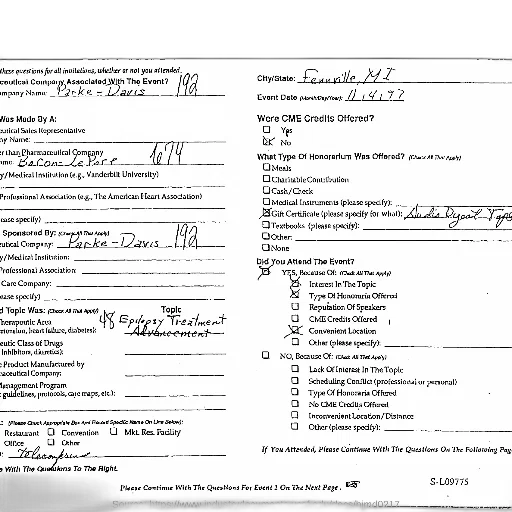 these questions for all invitations, whether or not you attended.
ceutical Company Associated With The Event?
mpany Name: Parke-Davis 192
Was Made By A:
eutical Sales Representative
ny Name:
er than Pharmaceutical Company
me: Bacon-LePore 1674
y/Medical Institution (e.g., Vanderbilt University)
Professional Association (e.g., The American Heart Association)
ease specify)
Sponsored By: (Check All That Apply)
eutical Company: Parke-Davis 192
y/Medical Institution:
Professional Association:
Care Company:
ease specify)
d Topic Was: (Check All That Apply) Topic
Therapeutic Area 48 Epilepsy Treatment
heart failure, diabetes): Advancement
eutic Class of Drugs
Inhibitors, diuretics):
c Product Manufactured by
maceutical Company:
Management Program
guidelines, protocols, care maps, etc.):
(Please Check Appropriate Box And Record Specific Name On Line Below):
Restaurant Convention Mkt. Res. Facility
Office Other
e With The Questions To The Right.
City/State: Fennville, MI
Event Date (Month/Day/Year): 11,4,97
Were CME Credits Offered?
Yes
No
What Type Of Honorarium Was Offered? (Check All That Apply)
Meals
Charitable Contribution
Cash/Check
Medical Instruments (please specify):
Gift Certificate (please specify for what): Audio Digest Tape
Textbooks (please specify):
Other:
None
Did You Attend The Event?
YES, Because Of: (Check All That Apply)
Interest In The Topic
Type Of Honoraria Offered
Reputation Of Speakers
CME Credits Offered
Convenient Location
Other (please specify):
NO, Because Of: (Check All That Apply)
Lack Of Interest In The Topic
Scheduling Conflict (professional or personal)
Type Of Honoraria Offered
No CME Credits Offered
Inconvenient Location/Distance
Other (please specify):
If You Attended, Please Continue With The Questions On The Following Pag
Please Continue With The Questions For Event 1 On The Next Page.
S-L09775